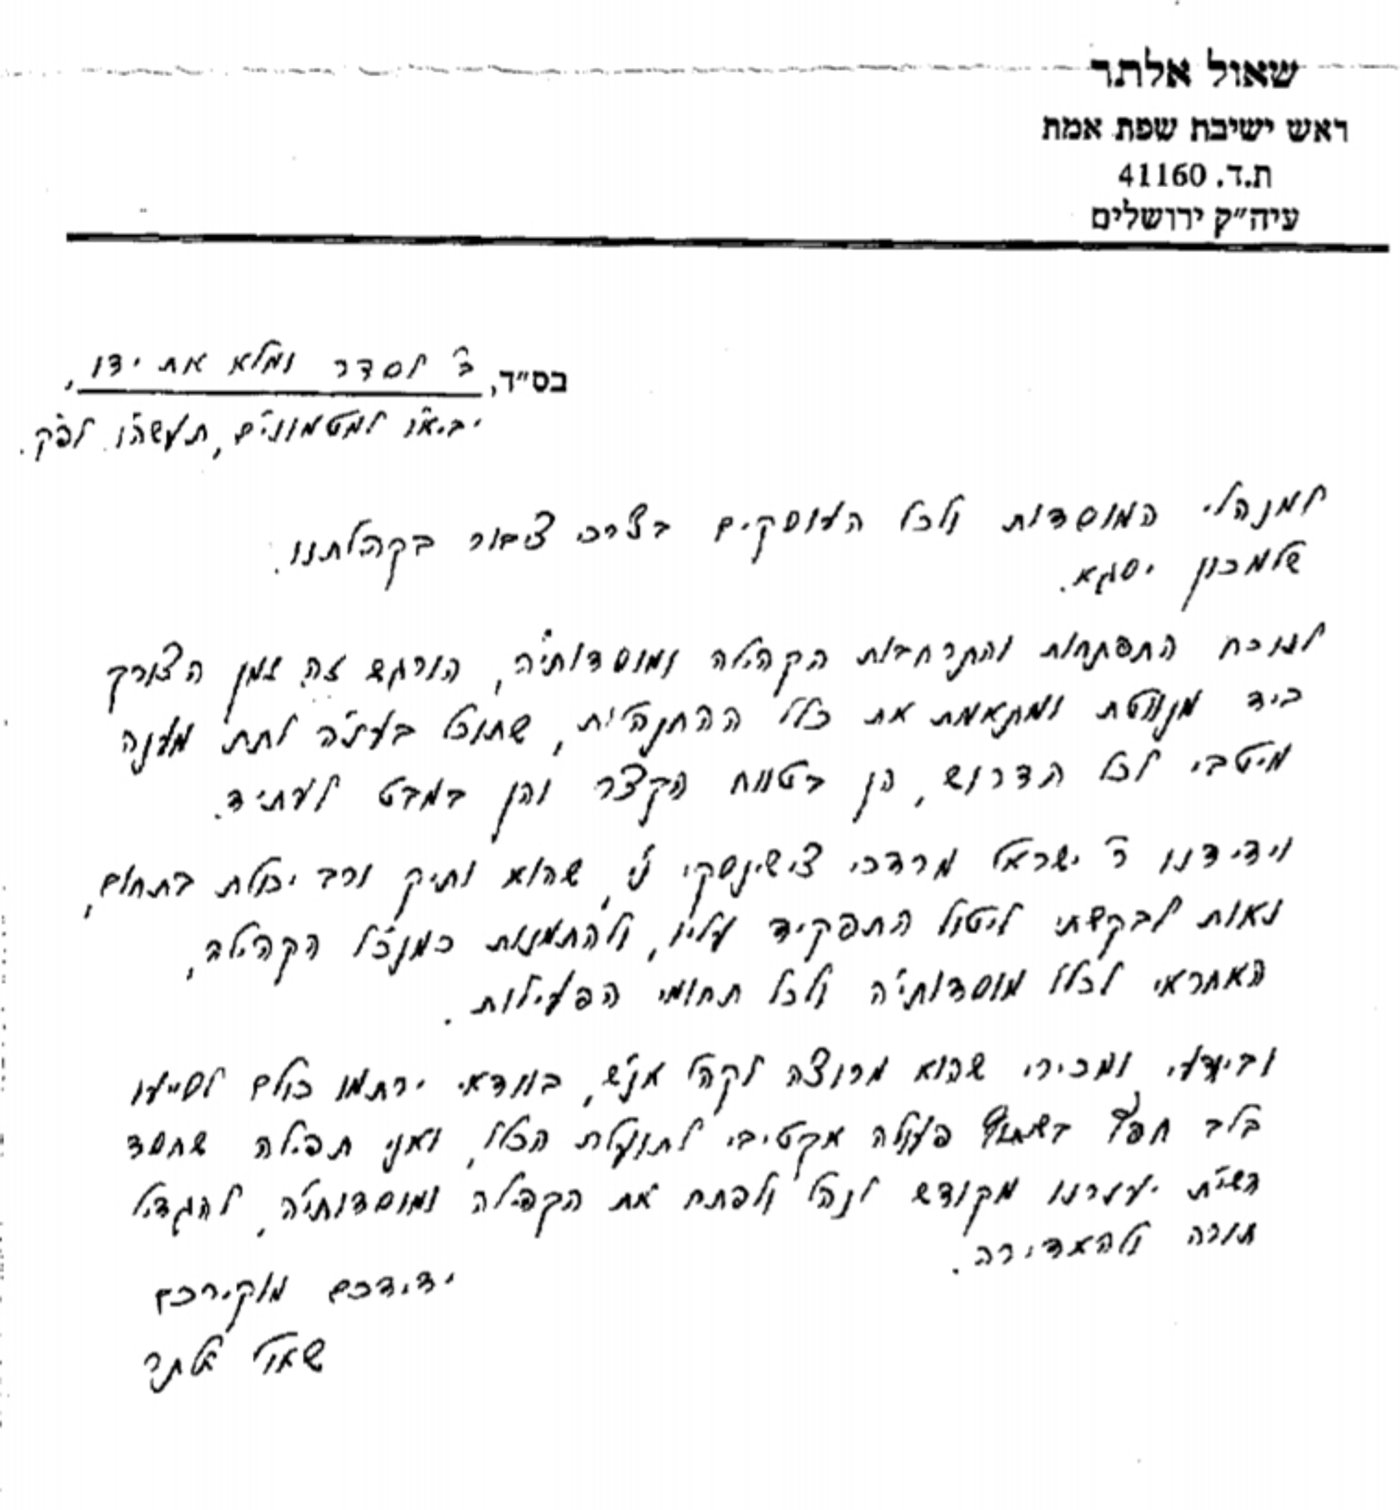 שאול אלתר
ראש ישיבת שפת אמת
ת.ד. 41160
עיה״ק ירושלים
בס״ד, ב׳ לסדר ומלא את ידו,
יביאו למטמונים, תעשה׳ו לפ״ק.
למנהלי המוסדות ולכל העוסקים בצרכי ציבור בקהילתנו.
שלמכון יסגא.
לנוכח התפתחות והתרחבות הקהילה ומוסדותי׳ה, הורגש זה זמן הצורך
ביד מנווטת ומתאמת את כלל ההתנהלות, שתוכל בעז״ה לתת מענה
מיטבי לכל הדרוש, הן בטווח הקצר והן במבט לעתיד.
וידידנו ר׳ ישראל מרדכי צישינסקי נ״י, שהוא ותיק ורב יכולת בתחום,
נאות לבקשתי ליטול התפקיד עליו, ולהתמנות כמנכ״ל הקהילה,
האחראי לכלל מוסדותי׳ה ולכל תחומי הפעילות.
וביודעי ומכירי שהוא מרוצה לקהל אנ״ש, בוודאי ירתמו כולם לסייעו
בלב חפץ בשיתוף פעולה אקטיבי לתועלת הכלל, ואני תפילה שחסד
השי״ת יעזרנו מקודש לנהל ולפתח את הקהילה ומוסדותי׳ה, להגדיל
תורה ולהאדירה.
ידידכם מוקירכם
שאול אלתר